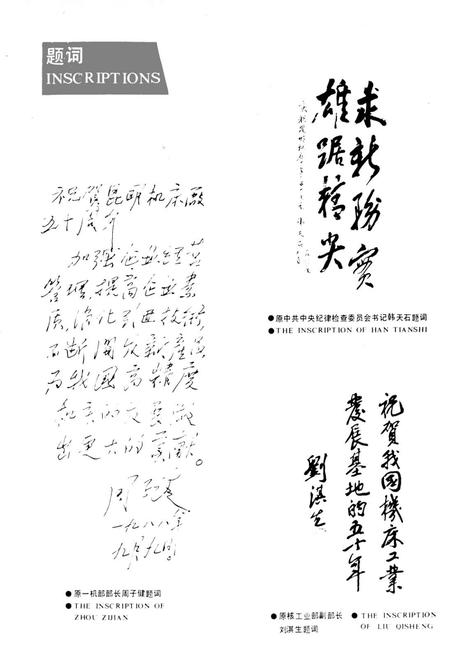 题词
INSCRIPTIONS
祝贺昆明机床厂
五十周年
加强企业经营
管理，提高企业素
质，消化引进技术，
不断开发新产品
为我国高精度
机床的发展做
出更大的贡献。
周子健
一九八六年
九月九日
●原一机部部长周子健题词
●THE INSCRIPTION OF
ZHOU ZIJIAN
求新务实
雄踞榜尖
●原中共中央纪律检查委员会书记韩天石题词
●THE INSCRIPTION OF HAN TIANSHI
祝贺我国機床工業
發展基地的五十年
劉淇生
●原核工业部副部长
刘淇生题词
●THE INSCRIPTION
OF LIU QISHENG